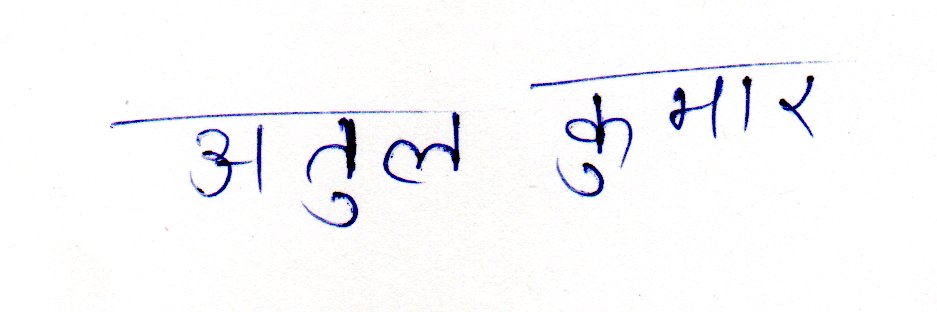 अतुल कुमार